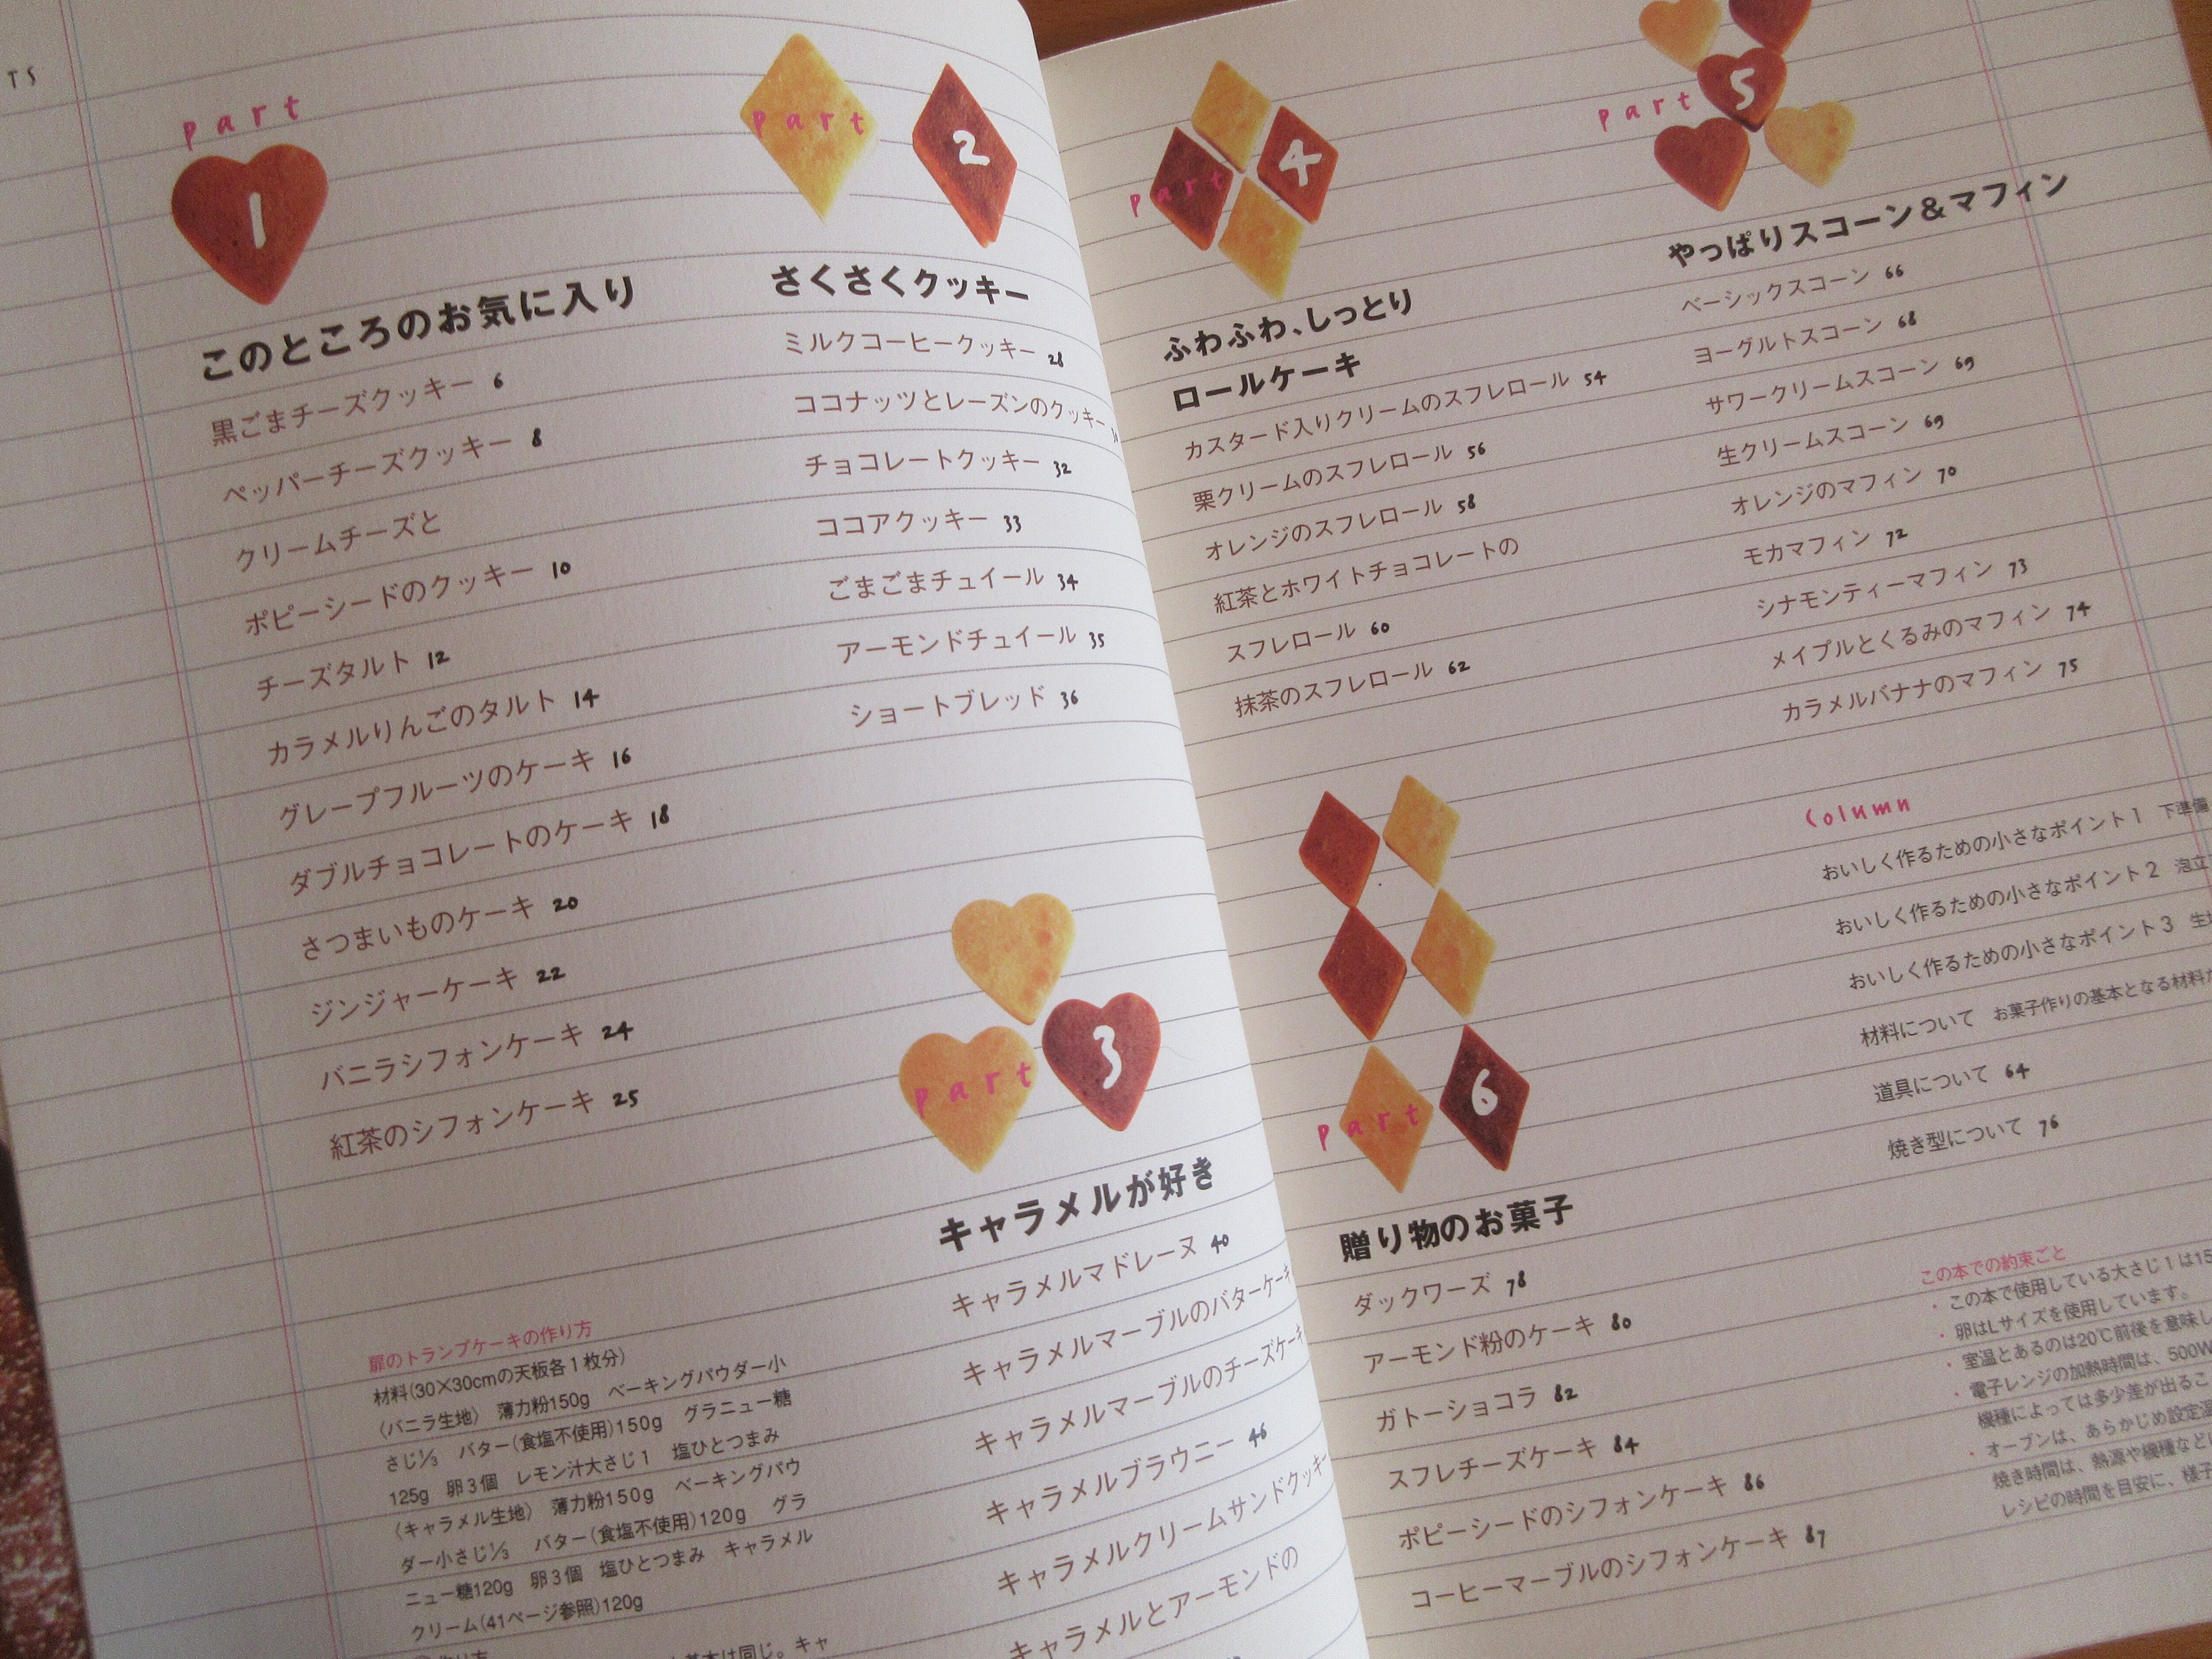 TS
part
1
このところのお気に入り
黒ごまチーズクッキー 6
ペッパーチーズクッキー 8
クリームチーズと
ポピーシードのクッキー 10
チーズタルト 12
カラメルりんごのタルト 14
グレープフルーツのケーキ 16
ダブルチョコレートのケーキ 18
さつまいものケーキ 20
ジンジャーケーキ 22
バニラシフォンケーキ 24
紅茶のシフォンケーキ 25
扉のトランプケーキの作り方
材料(30×30cmの天板各1枚分)
〈バニラ生地〉 薄力粉150g ベーキングパウダー小
さじ⅓ バター(食塩不使用)150g グラニュー糖
125g 卵3個 レモン汁大さじ1 塩ひとつまみ
〈キャラメル生地〉 薄力粉150g ベーキングパウ
ダー小さじ⅓ バター(食塩不使用)120g グラ
ニュー糖120g 卵3個 塩ひとつまみ キャラメル
クリーム(41ページ参照)120g
作り方
基本は同じ。キャ
part
2
さくさくクッキー
ミルクコーヒークッキー 28
ココナッツとレーズンのクッキー
チョコレートクッキー 32
ココアクッキー 33
ごまごまチュイール 34
アーモンドチュイール 35
ショートブレッド 36
part
3
キャラメルが好き
キャラメルマドレーヌ 40
キャラメルマーブルのバターケーキ
キャラメルマーブルのチーズケーキ
キャラメルブラウニー 46
キャラメルクリームサンドクッキー
キャラメルとアーモンドの
part
4
ふわふわ、しっとり
ロールケーキ
カスタード入りクリームのスフレロール 54
栗クリームのスフレロール 56
オレンジのスフレロール 58
紅茶とホワイトチョコレートの
スフレロール 60
抹茶のスフレロール 62
part
5
やっぱりスコーン&マフィン
ベーシックスコーン 66
ヨーグルトスコーン 68
サワークリームスコーン 69
生クリームスコーン 69
オレンジのマフィン 70
モカマフィン 72
シナモンティーマフィン 73
メイプルとくるみのマフィン 74
カラメルバナナのマフィン 75
part
6
贈り物のお菓子
ダックワーズ 78
アーモンド粉のケーキ 80
ガトーショコラ 82
スフレチーズケーキ 84
ポピーシードのシフォンケーキ 86
コーヒーマーブルのシフォンケーキ 87
Column
おいしく作るための小さなポイント1 下準備
おいしく作るための小さなポイント2 泡立
おいしく作るための小さなポイント3 生地
材料について お菓子作りの基本となる材料
道具について 64
焼き型について 76
この本での約束ごと
・この本で使用している大さじ1は15
・卵はLサイズを使用しています。
・室温とあるのは20℃前後を意味し
・電子レンジの加熱時間は、500W
機種によっては多少差が出るこ
・オーブンは、あらかじめ設定温
焼き時間は、熱源や機種などに
レシピの時間を目安に、様子